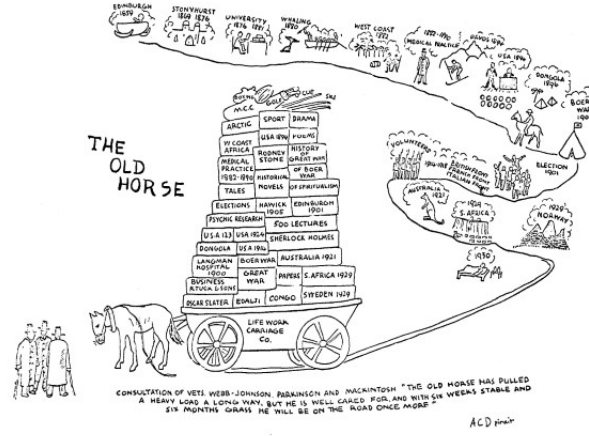 EDINBURGH
1859
STONYHURST
1869 1876
UNIVERSITY
1876 1881
WHALING
1880
WEST COAST
1882
1882-1890
MEDICAL PRACTICE
DAVOS 1894
USA 1894
DONGOLA
1896
BOER
WAR
ELECTION
1901
VOLUNTEERS
1914-1918
BRITISH FRONT
FRENCH FRONT
ITALIAN FRONT
AUSTRALIA
1921
1929
S. AFRICA
1929
NORWAY
1930
THE
OLD
HORSE
BOXING
GOLF
CUE
SKIS
M.C.C
ARCTIC
SPORT
DRAMA
W COAST
AFRICA
USA 1894
POEMS
MEDICAL
PRACTICE
1882-1890
RODNEY
STONE
HISTORY
OF
GREAT WAR
HISTORICAL
OF BOER
WAR
TALES
NOVELS
OF SPIRITUALISM
ELECTIONS
HAWICK
1905
EDINBURGH
1901
PSYCHIC RESEARCH
500 LECTURES
U.S.A 123
USA 1924
SHERLOCK HOLMES
DONGOLA
U.S.A 1914
LANGMAN
HOSPITAL
1900
BOER WAR
AUSTRALIA 1921
GREAT
WAR
PAPERS
S. AFRICA 1929
BUSINESS
R.TUCK & SONS
OSCAR SLATER
EDALJI
CONGO
SWEDEN 1929
LIFE WORK
CARRIAGE
CO.
CONSULTATION OF VETS. WEBB-JOHNSON, PARKINSON AND MACKINTOSH "THE OLD HORSE HAS PULLED
A HEAVY LOAD A LONG WAY, BUT HE IS WELL CARED FOR, AND WITH SIX WEEKS STABLE AND
SIX MONTHS GRASS HE WILL BE ON THE ROAD ONCE MORE"
ACD pinxit